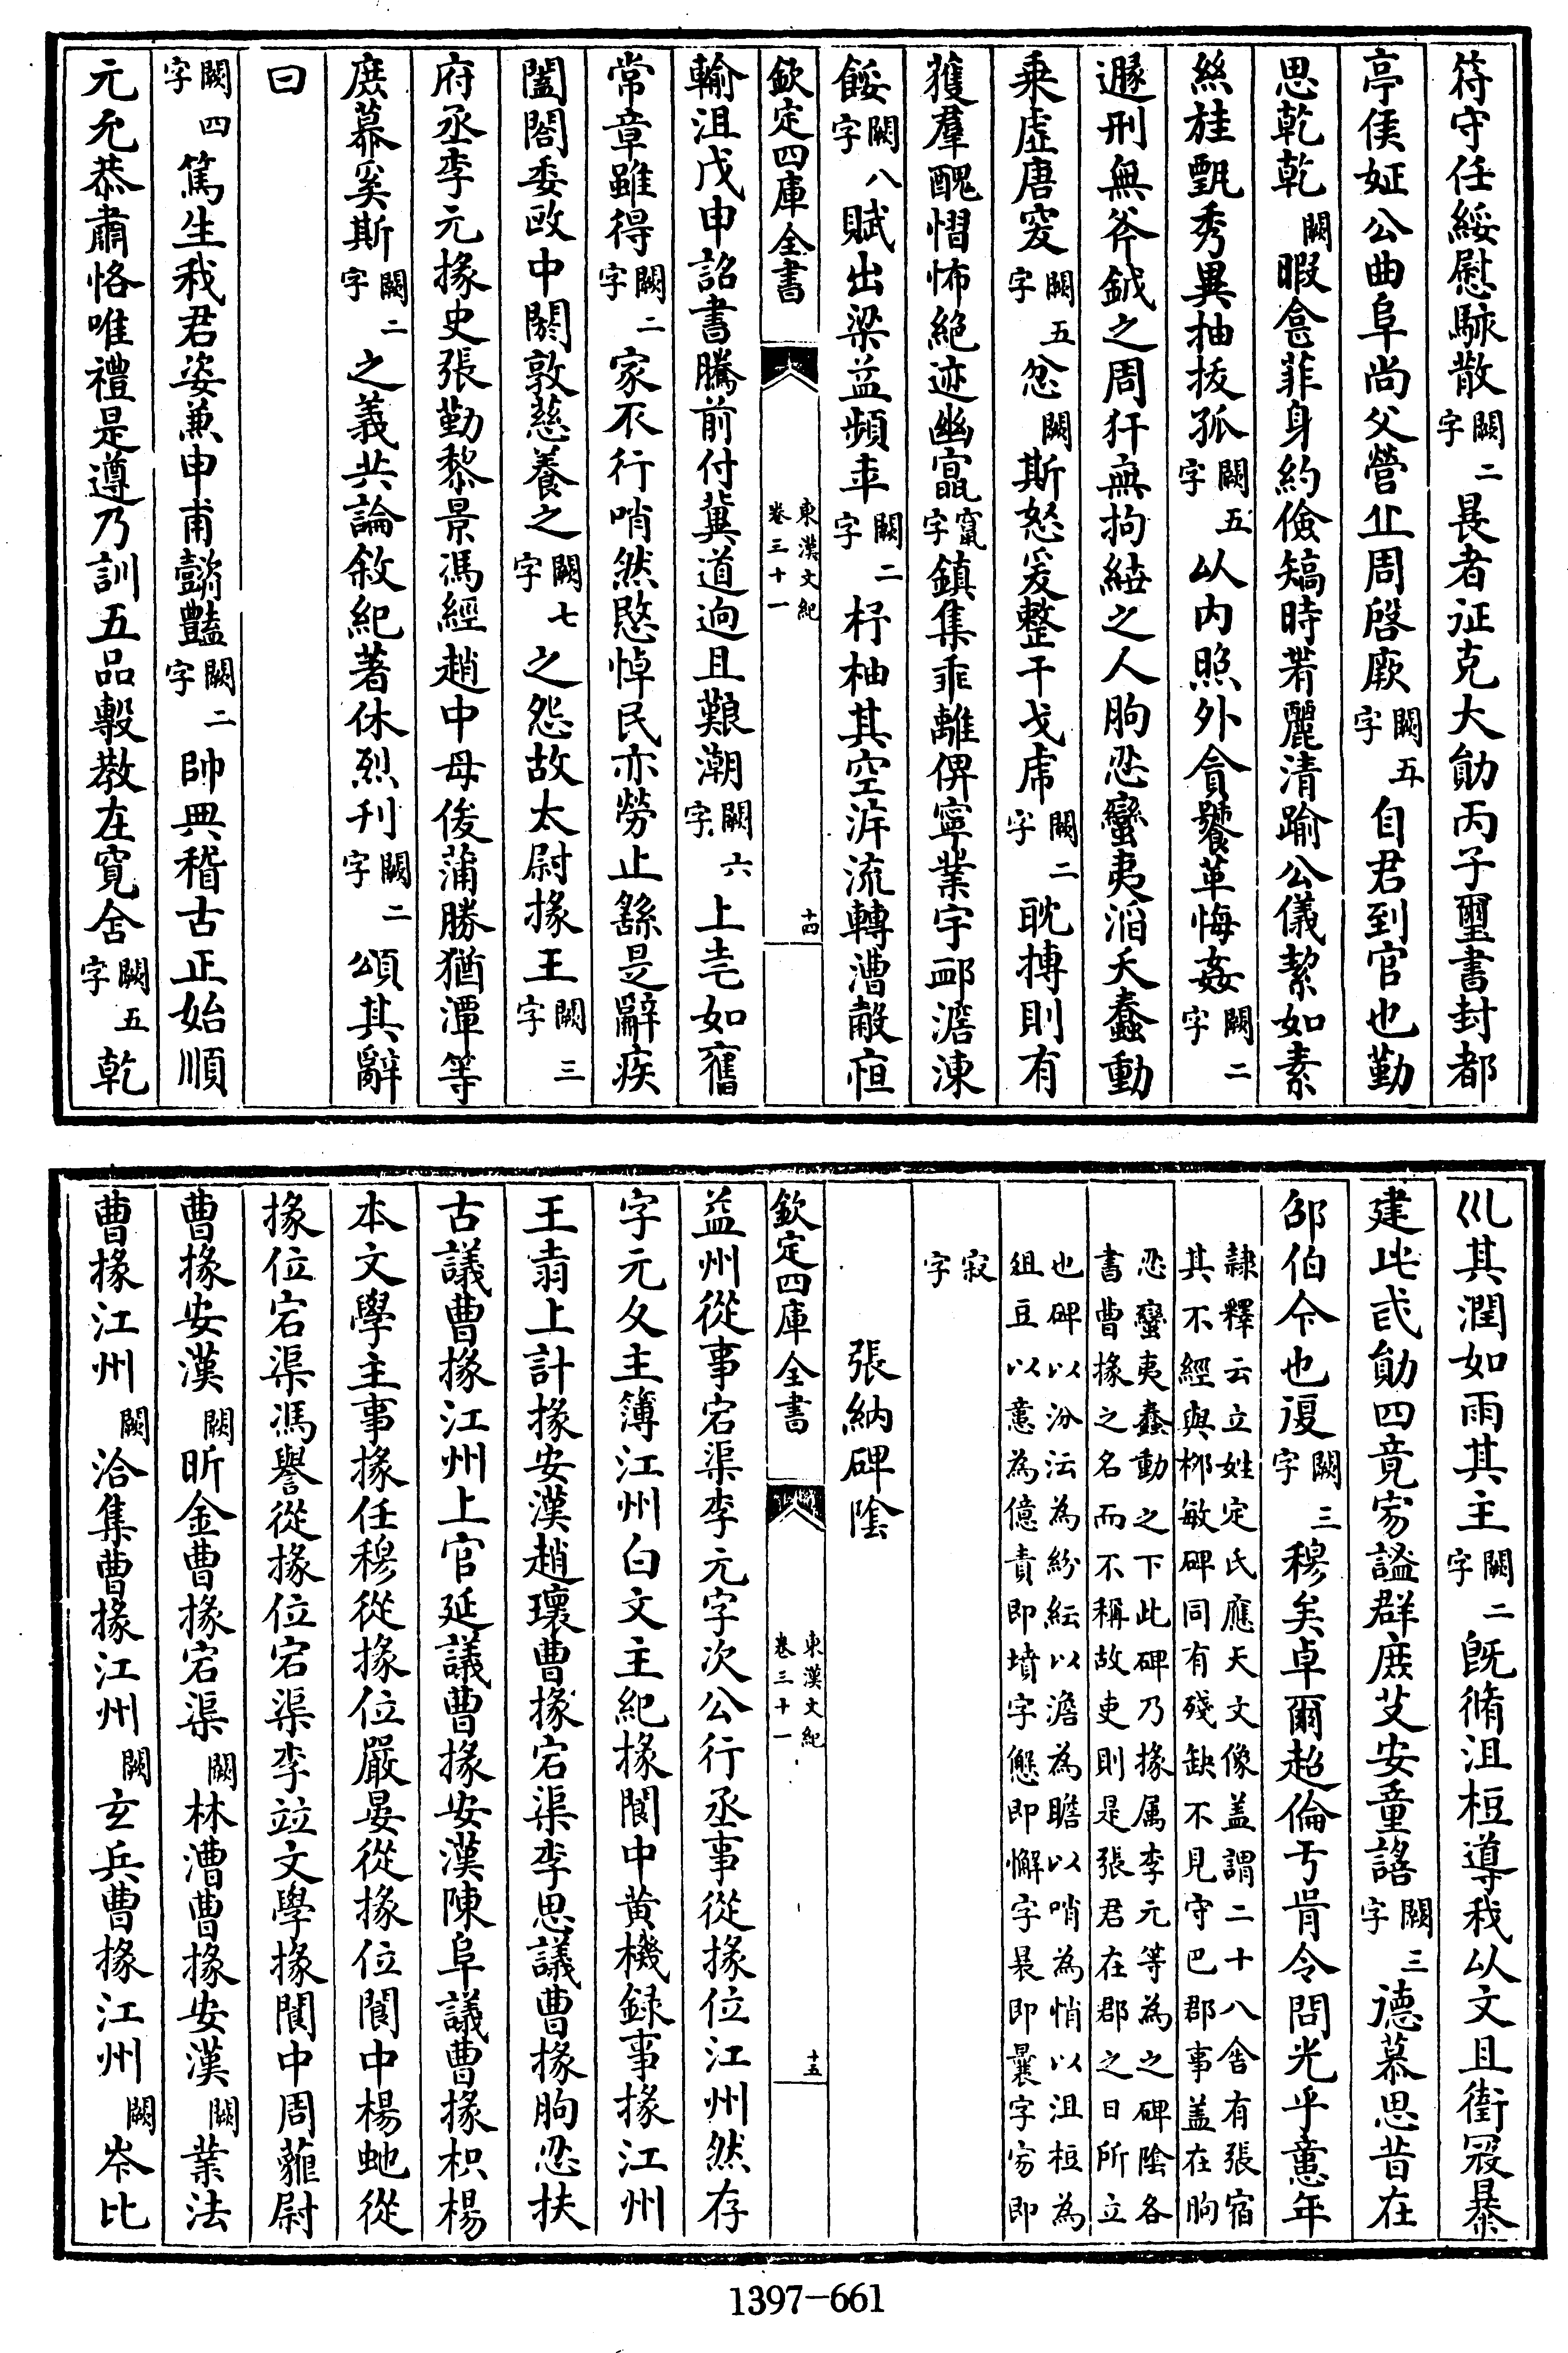 符守任綏慰駭散闕二字㬥者征克大勛丙子璽書封都
亭侯姃公曲阜尚父營丘周啓厥闕五字自君到官也勤
思乾乾闕暇食菲身約儉矯時芾麗清踰公儀絜如素
絲桂甄秀異抽拔孤闕五字以內照外貪饕革悔姦闕二字
遯刑無斧鉞之周犴無拘結之人朐忍蠻夷滔天蠢動
乘虛唐突闕五字忿闕斯怒爰整干戈虎闕二字耽搏則有
獲羣醜慴怖絕迹幽竄竄字鎮集乖離俾寧業宇澹涷
餒闕八字賦出梁益頻年闕二字杼柚其空泝流轉漕敵恒
欽定四庫全書 東漢文紀卷三十一 十四
輸沮戊申詔書騰前付冀道迥且艱潮闕六字上老如舊
常章雖得闕二字家不行哨然愍悼民亦勞止繇是辭疾
闔閤委政中閼敦慈養之闕七字之怨故太尉掾王闕三字
府丞李元掾史張勤黎景馮經趙中毋俊蒲勝猶潭等
庶慕奚斯闕二字之義共論敘紀著休烈刊闕二字頌其辭
曰
闕四字篤生我君姿兼申甫懿豔闕二字帥典稽古正始順
元允恭肅恪唯禮是遵乃訓五品敷教在寬含闕五字乾
巛其潤如雨其主闕二字旣脩沮桓導我以文且衛冦暴
建此貳勛四竟寍謐群庶艾安童謠闕三字德慕思昔在
邵伯今也復闕三字穆矣卓爾超倫亏肯令問光乎億年
隸釋云立姓定氏應天文像盖謂二十八舍有張宿
其不經與栁敏碑同有殘缺不見守巴郡事盖在朐
忍蠻夷蠢動之下此碑乃掾属李元等為之碑陰各
書曹掾之名而不稱故吏則是張君在郡之日所立
也碑以汾沄為紛紜以澹為贍以哨為悄以沮桓為
俎豆以意為億責即墳字㦗即懈字㬥即曩字寍即
寂字
張納碑陰
欽定四庫全書 東漢文紀卷三十一 十五
益州從事宕渠李元字次公行丞事從掾位江州然存
字元攵主簿江州白文主紀掾閬中黄機録事掾江州
王翕上計掾安漢趙瓌曹掾宕渠李思議曹掾朐忍扶
古議曹掾江州上官延議曹掾安漢陳阜議曹掾枳楊
本文學主事掾任穆從掾位嚴晏從掾位閬中楊虵從
掾位宕渠馮譽從掾位宕渠李竝文學掾閬中周蘿尉
曹掾安漢闕昕金曹掾宕渠闕林漕曹掾安漢闕業法
曹掾江州闕洽集曹掾江州闕玄兵曹掾江州闕岑比
1397-661